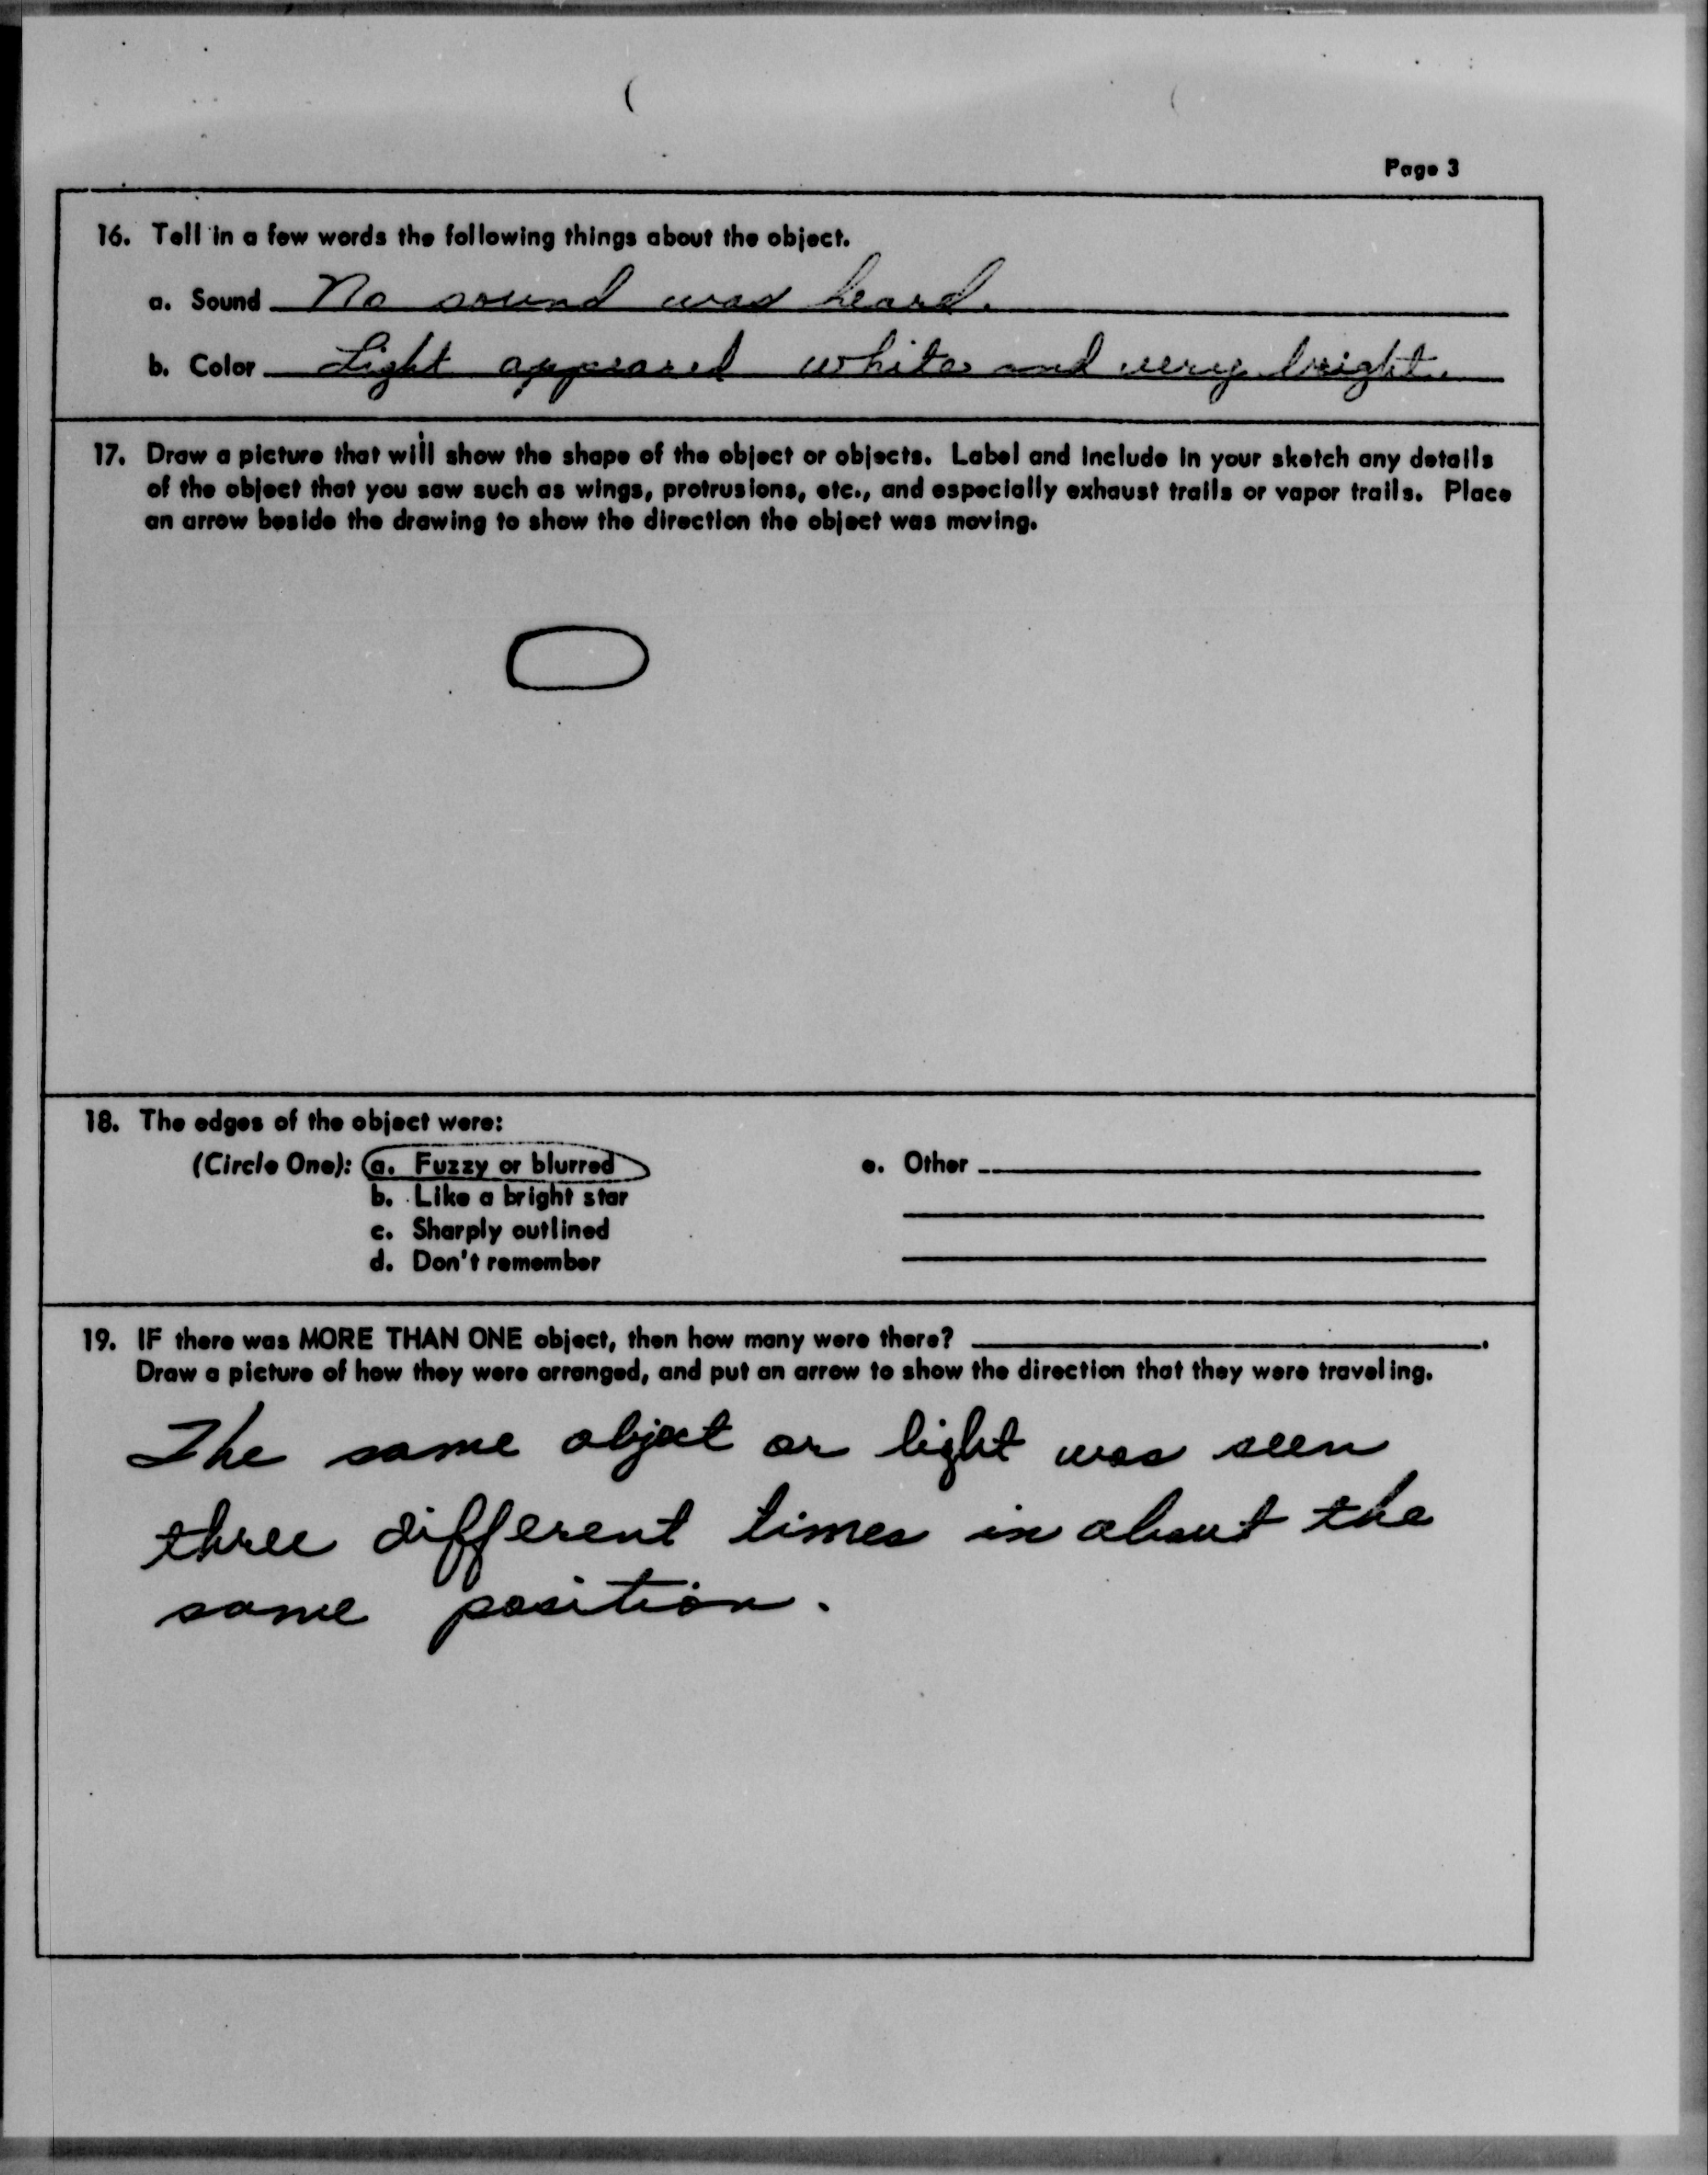 Page 3
16. Tell in a few words the following things about the object.
a. Sound No sound was heard.
b. Color Light appeared white and very bright.
17. Draw a picture that will show the shape of the object or objects. Label and include in your sketch any details
of the object that you saw such as wings, protrusions, etc., and especially exhaust trails or vapor trails. Place
an arrow beside the drawing to show the direction the object was moving.
18. The edges of the object were:
(Circle One): a. Fuzzy or blurred e. Other
b. Like a bright star
c. Sharply outlined
d. Don't remember
19. IF there was MORE THAN ONE object, then how many were there? .
Draw a picture of how they were arranged, and put an arrow to show the direction that they were traveling.
The same object or light was seen
three different times in about the
same position.